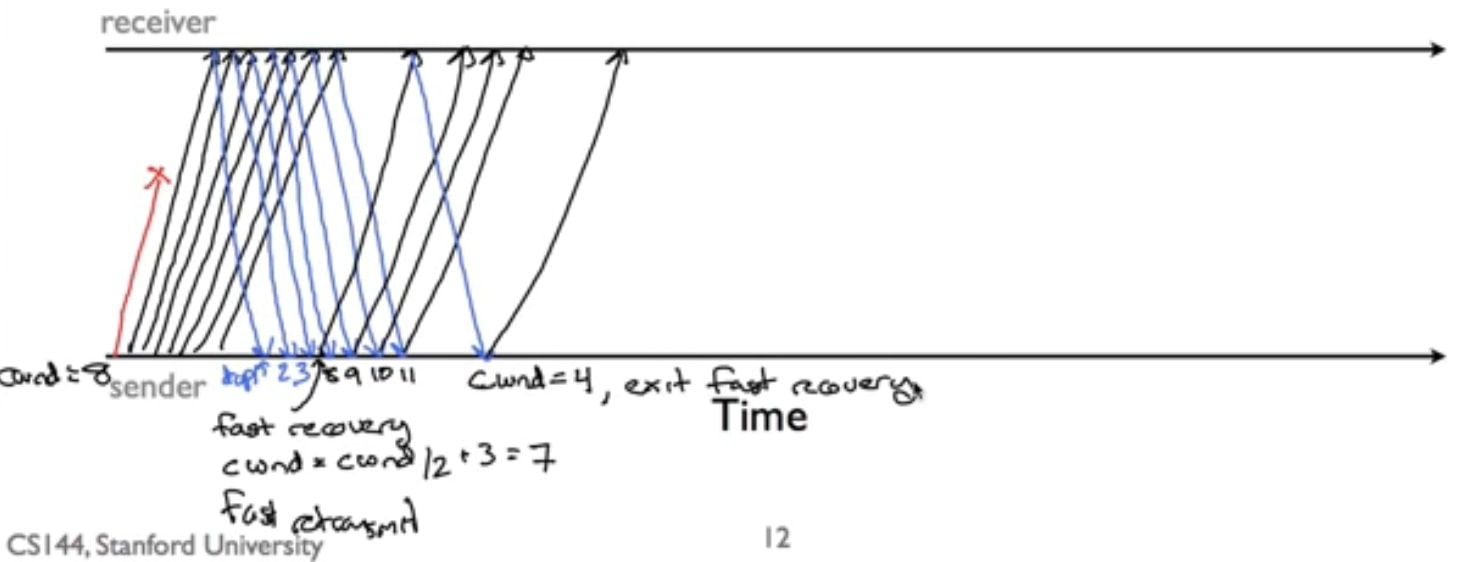 receiver
cwnd=8
sender
2 3 8 9 10 11
cwnd=4, exit fast recovery
Time
fast recovery
cwnd = cwnd/2 + 3 = 7
fast retransmit
CS144, Stanford University
12